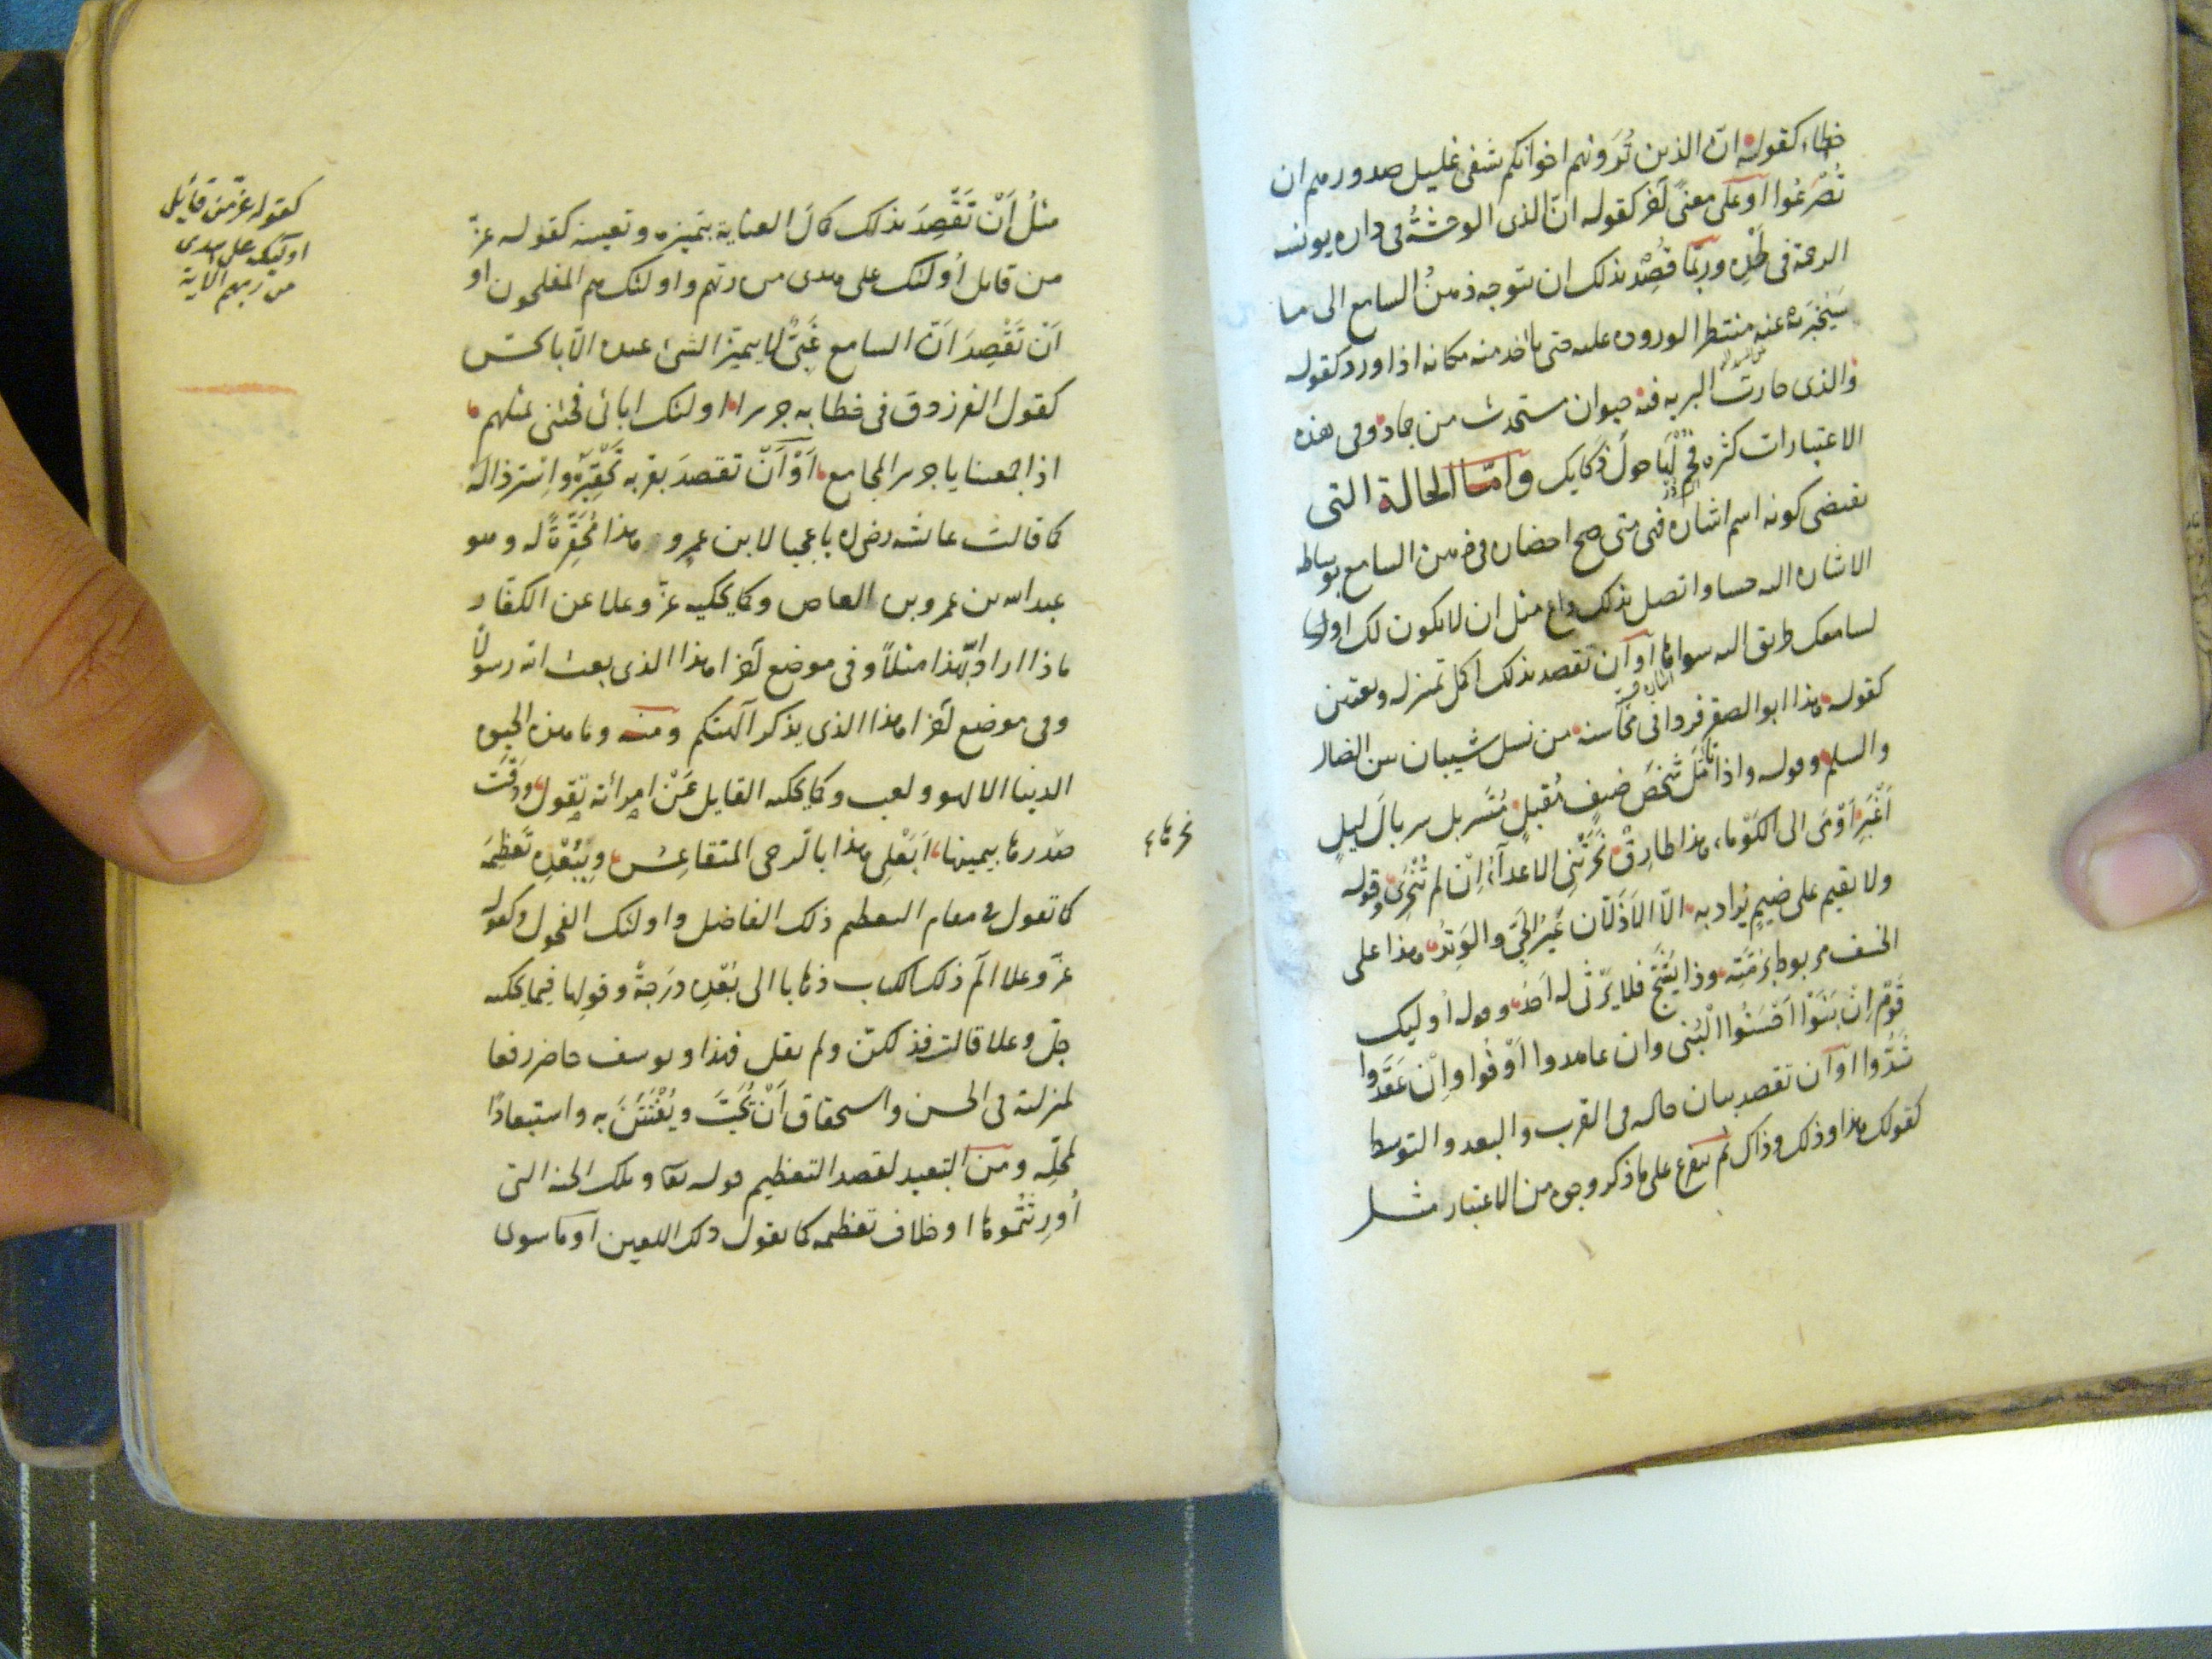 خطاء كقوله ان الذين تُرَونهم اخوانكم شفى غليل صدورهم ان
تُصْرَعُوا او على معنًى آخر كقوله انّ الذى الوحشةُ فى داره يونسه
الرحمة فى لحْدِه وربّما قُصِدَ بذلك ان يتوجه ذهنُ السامع الى ما
سَيُخْبَره عنه منتظرا لوروده عليه حتى ياخذ منه مكانه اذا ورد كقوله
والذى حارت البريه فيه حيوان مستحدث من جماد وفى هذه
الاعتبارات كثره فحُمْ لَهَا حول ذكايك وامّا الحالة التى
تقتضى كونه اسم اشاره فهى متى صح احضاره فى ذهن السامع بوساطه
الاشاره اليه حسا واتصل بذلك داع مثل ان لا يكون لك او
لسامعك طريق اليه سواها او ان تقصد بذلك اكمل تمييز له وتعيين
كقوله هذا ابو الصقر فردا فى محاسنه من نسل شيبان بين الضال
والسلم وقوله واذا تأمّل شخصَ ضيفٍ مُقبلٍ مُتَسَربل سربالَ ليلٍ
اَغْبَرِ اَوْمَى الى الكَوْماء هذا طارقٌ نَحَرَتْنى الاعدآءُ اِنْ لم تُنْحَرى وقوله
ولا يقيم على ضيمٍ يُراد به الّا الاَذَلّان عَيْرُ الحَىّ والوَتِدُ هذا على
الخسف مربوط برُمّته وذا يُشَجّ فلا يرْثى له اَحدٌ وقوله أوليك
قَوْمٌ اِنْ بَنَوْا اَحْسَنُوا الْبُنى وان عاهدوا اَوْفُوا واِنْ عَقَدُوا
شَدُّوا او ان تقصد بيان حاله فى القرب والبعد والتوسط
كقولك هذا وذلك وذاك ثم يتفرع على ما ذكر وجوه من الاعتبار مثل
مثلُ اَنْ تَقْصِدَ بذلك كمالَ العناية بتمييزه وتعيينه كقوله عزّ
من قايل أُولئك على هدى من ربّهم واولئك هم المفلحون او
اَنْ تَقْصِدَ اَنّ السامع غَبِىٌّ لا يتميّز الشئ عنده الّا بالحسّ
كقول الفرزدق فى خطابه جريرا اولئك ابائى فجئنى بمثلهم
اذا جمعتنا يا جرير المجامع اَوْ اَنْ تقصدَ بقربه تَحْقِيرَه واِسْترذالَه
كما قالت عائشه رضى له يا عجبا لابن عمرو هذا مُحَقِّرةً له وهو
عبد الله بن عمرو بن العاص وكما يحكيه عزّ وعلا عن الكفّار
ماذا اراد الله بهذا مثلاً وفى موضع آخر اهذا الذى بعث الله رسولًا
وفى موضع آخر اهذا الذى يذكر آلهتكم ومنه وما هذه الحيوة
الدنيا الا لهو ولعب وكما يحكيه القايل عَنْ امرأته تقول ودَقّتْ
صَدرها بيمينها اَبَعْلِى هذا بالرحى المتقاعِسُ وبِبُعْدِه تَعْظِيمَه
كما تقول فى مقام التعظيم ذلك الفاضل واولئك الفحول وكقوله
عزّ وعلا الم ذلك الكتاب ذهابا الى بُعْدِه دَرَجةً وقولِها فيما يحكيه
جلّ وعلا قالت فذلكنّ ولم يقل فهذا ويوسف حاضر رفعا
لمنزلته فى الحسن واستحقاق اَنْ يُحَبَّ ويُفْتَتَنَ به واستبعادًا
لمحلّه ومن التبعيد لقصد التعظيم قوله تعا وتلك الجنة التى
أُورِثْتُمُوها او خلاف تعظيمه كما تقول ذلك اللعين او ما سوى
كقوله عزّ من قايل
اوليك على هدى
من ربهم الاية
نحرها